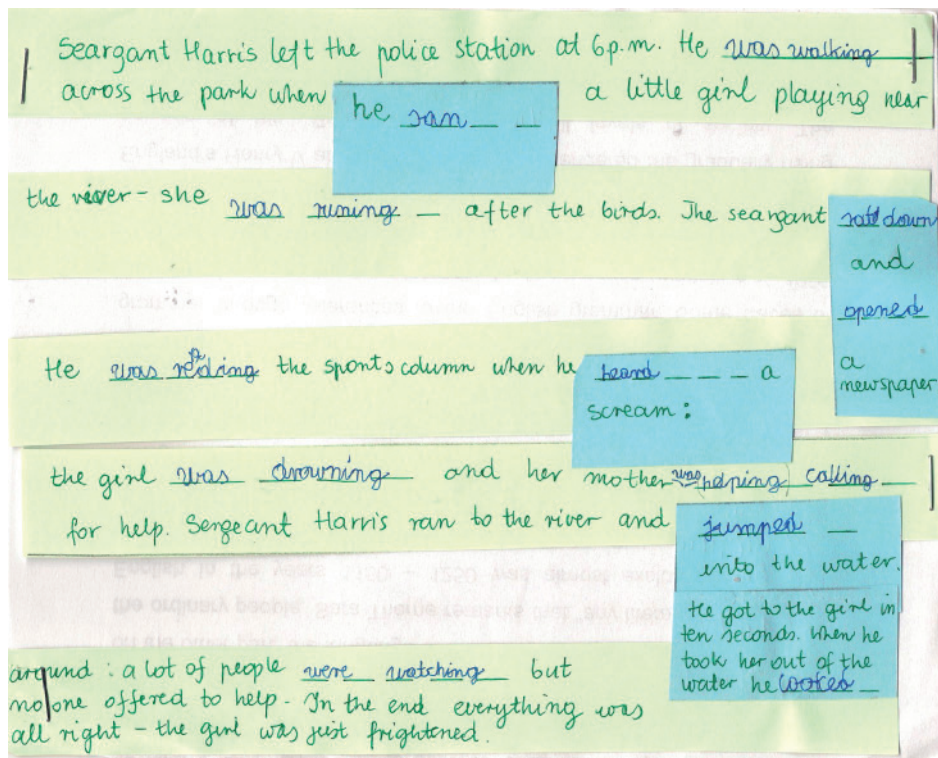 Seargant Harris left the police station at 6p.m. He was walking
across the park when he san a little girl playing near
the river - she was runing after the birds. The seargant satt down
and
opened
a
newspaper
He was reading the sponts column when he heard a
scream :
the girl was drowning and her mother was helping calling
for help. Sergeant Harris ran to the river and jumped
into the water.
He got to the girl in
ten seconds. When he
took her out of the
water he looked
around : a lot of people were watching but
no one offered to help. In the end everything was
all right - the girl was just frightened.